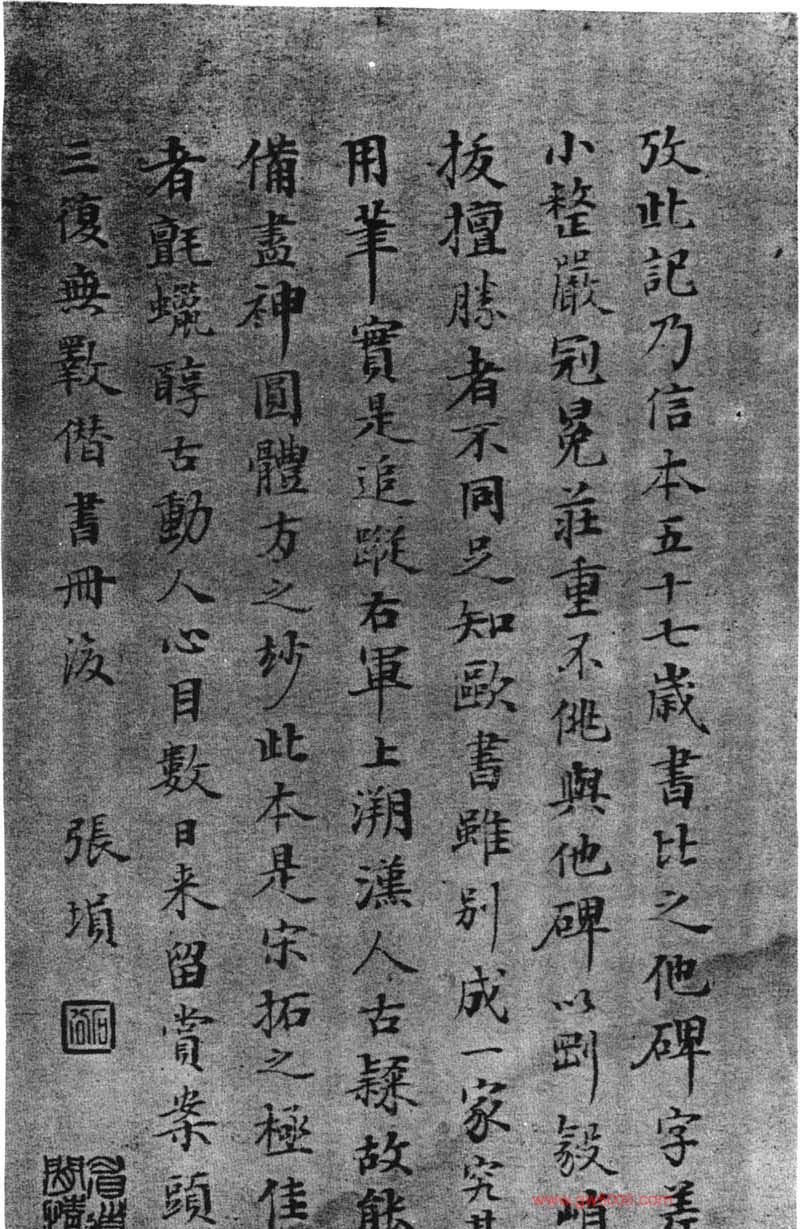 攷此記乃信本五十七歲書比之他碑字差
小整嚴冠冕莊重不佻與他碑以剛毅峭
拔擅勝者不同足知歐書雖別成一家究其
用筆實是追蹤右軍上溯漢人古隸故能
備盡神圓體方之妙此本是宋拓之極佳
者氈蠟醇古動人心目數日来留賞案頭
三復無斁僭書冊後 張塤